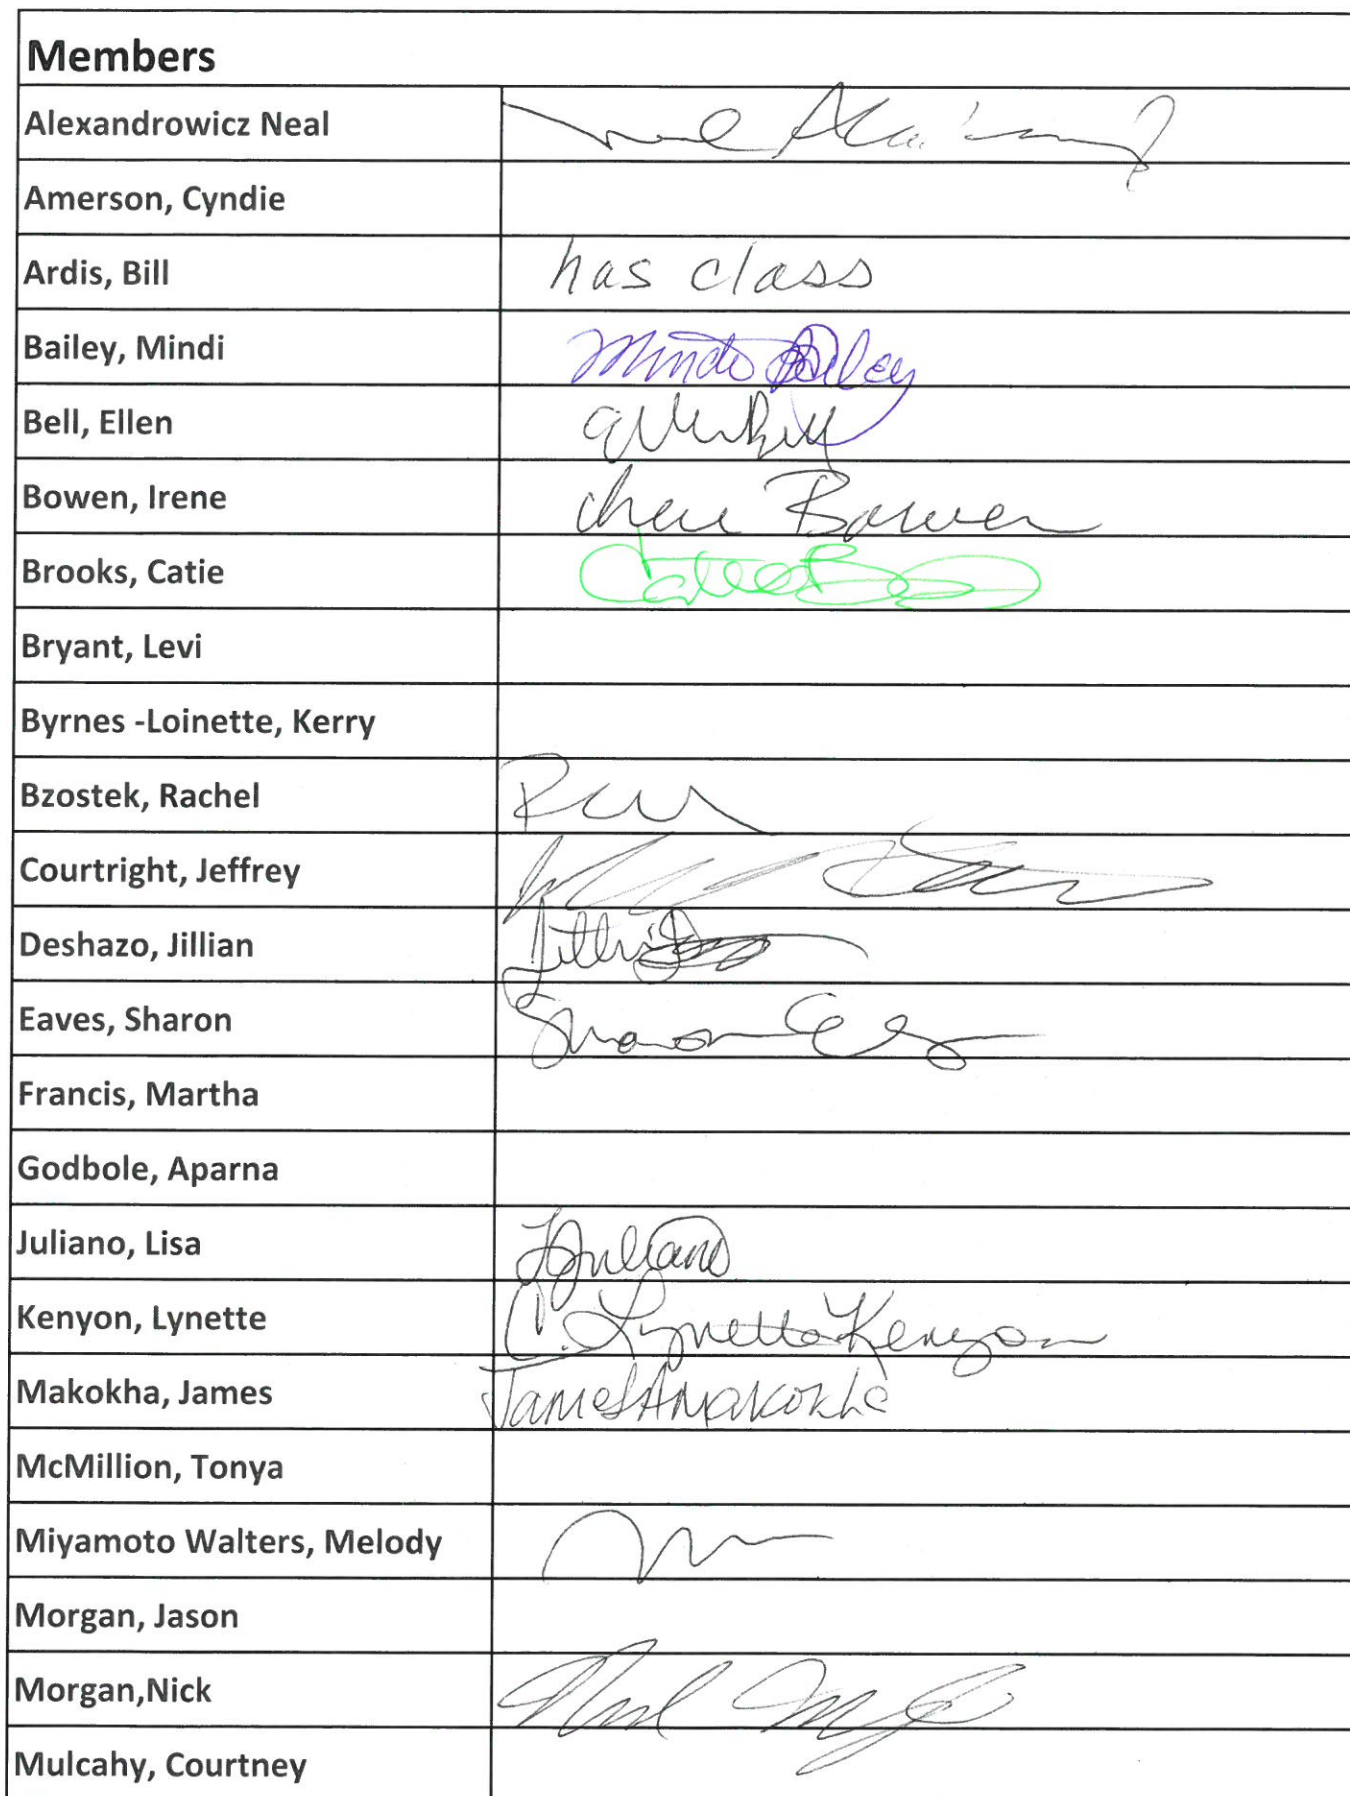 Members
Alexandrowicz Neal
Amerson, Cyndie
Ardis, Bill has class
Bailey, Mindi Mindi Bailey
Bell, Ellen
Bowen, Irene Irene Bowen
Brooks, Catie Catie B
Bryant, Levi
Byrnes -Loinette, Kerry
Bzostek, Rachel
Courtright, Jeffrey
Deshazo, Jillian
Eaves, Sharon Sharon
Francis, Martha
Godbole, Aparna
Juliano, Lisa LJuliano
Kenyon, Lynette C. Lynette Kenyon
Makokha, James James A Makokha
McMillion, Tonya
Miyamoto Walters, Melody
Morgan, Jason
Morgan,Nick
Mulcahy, Courtney